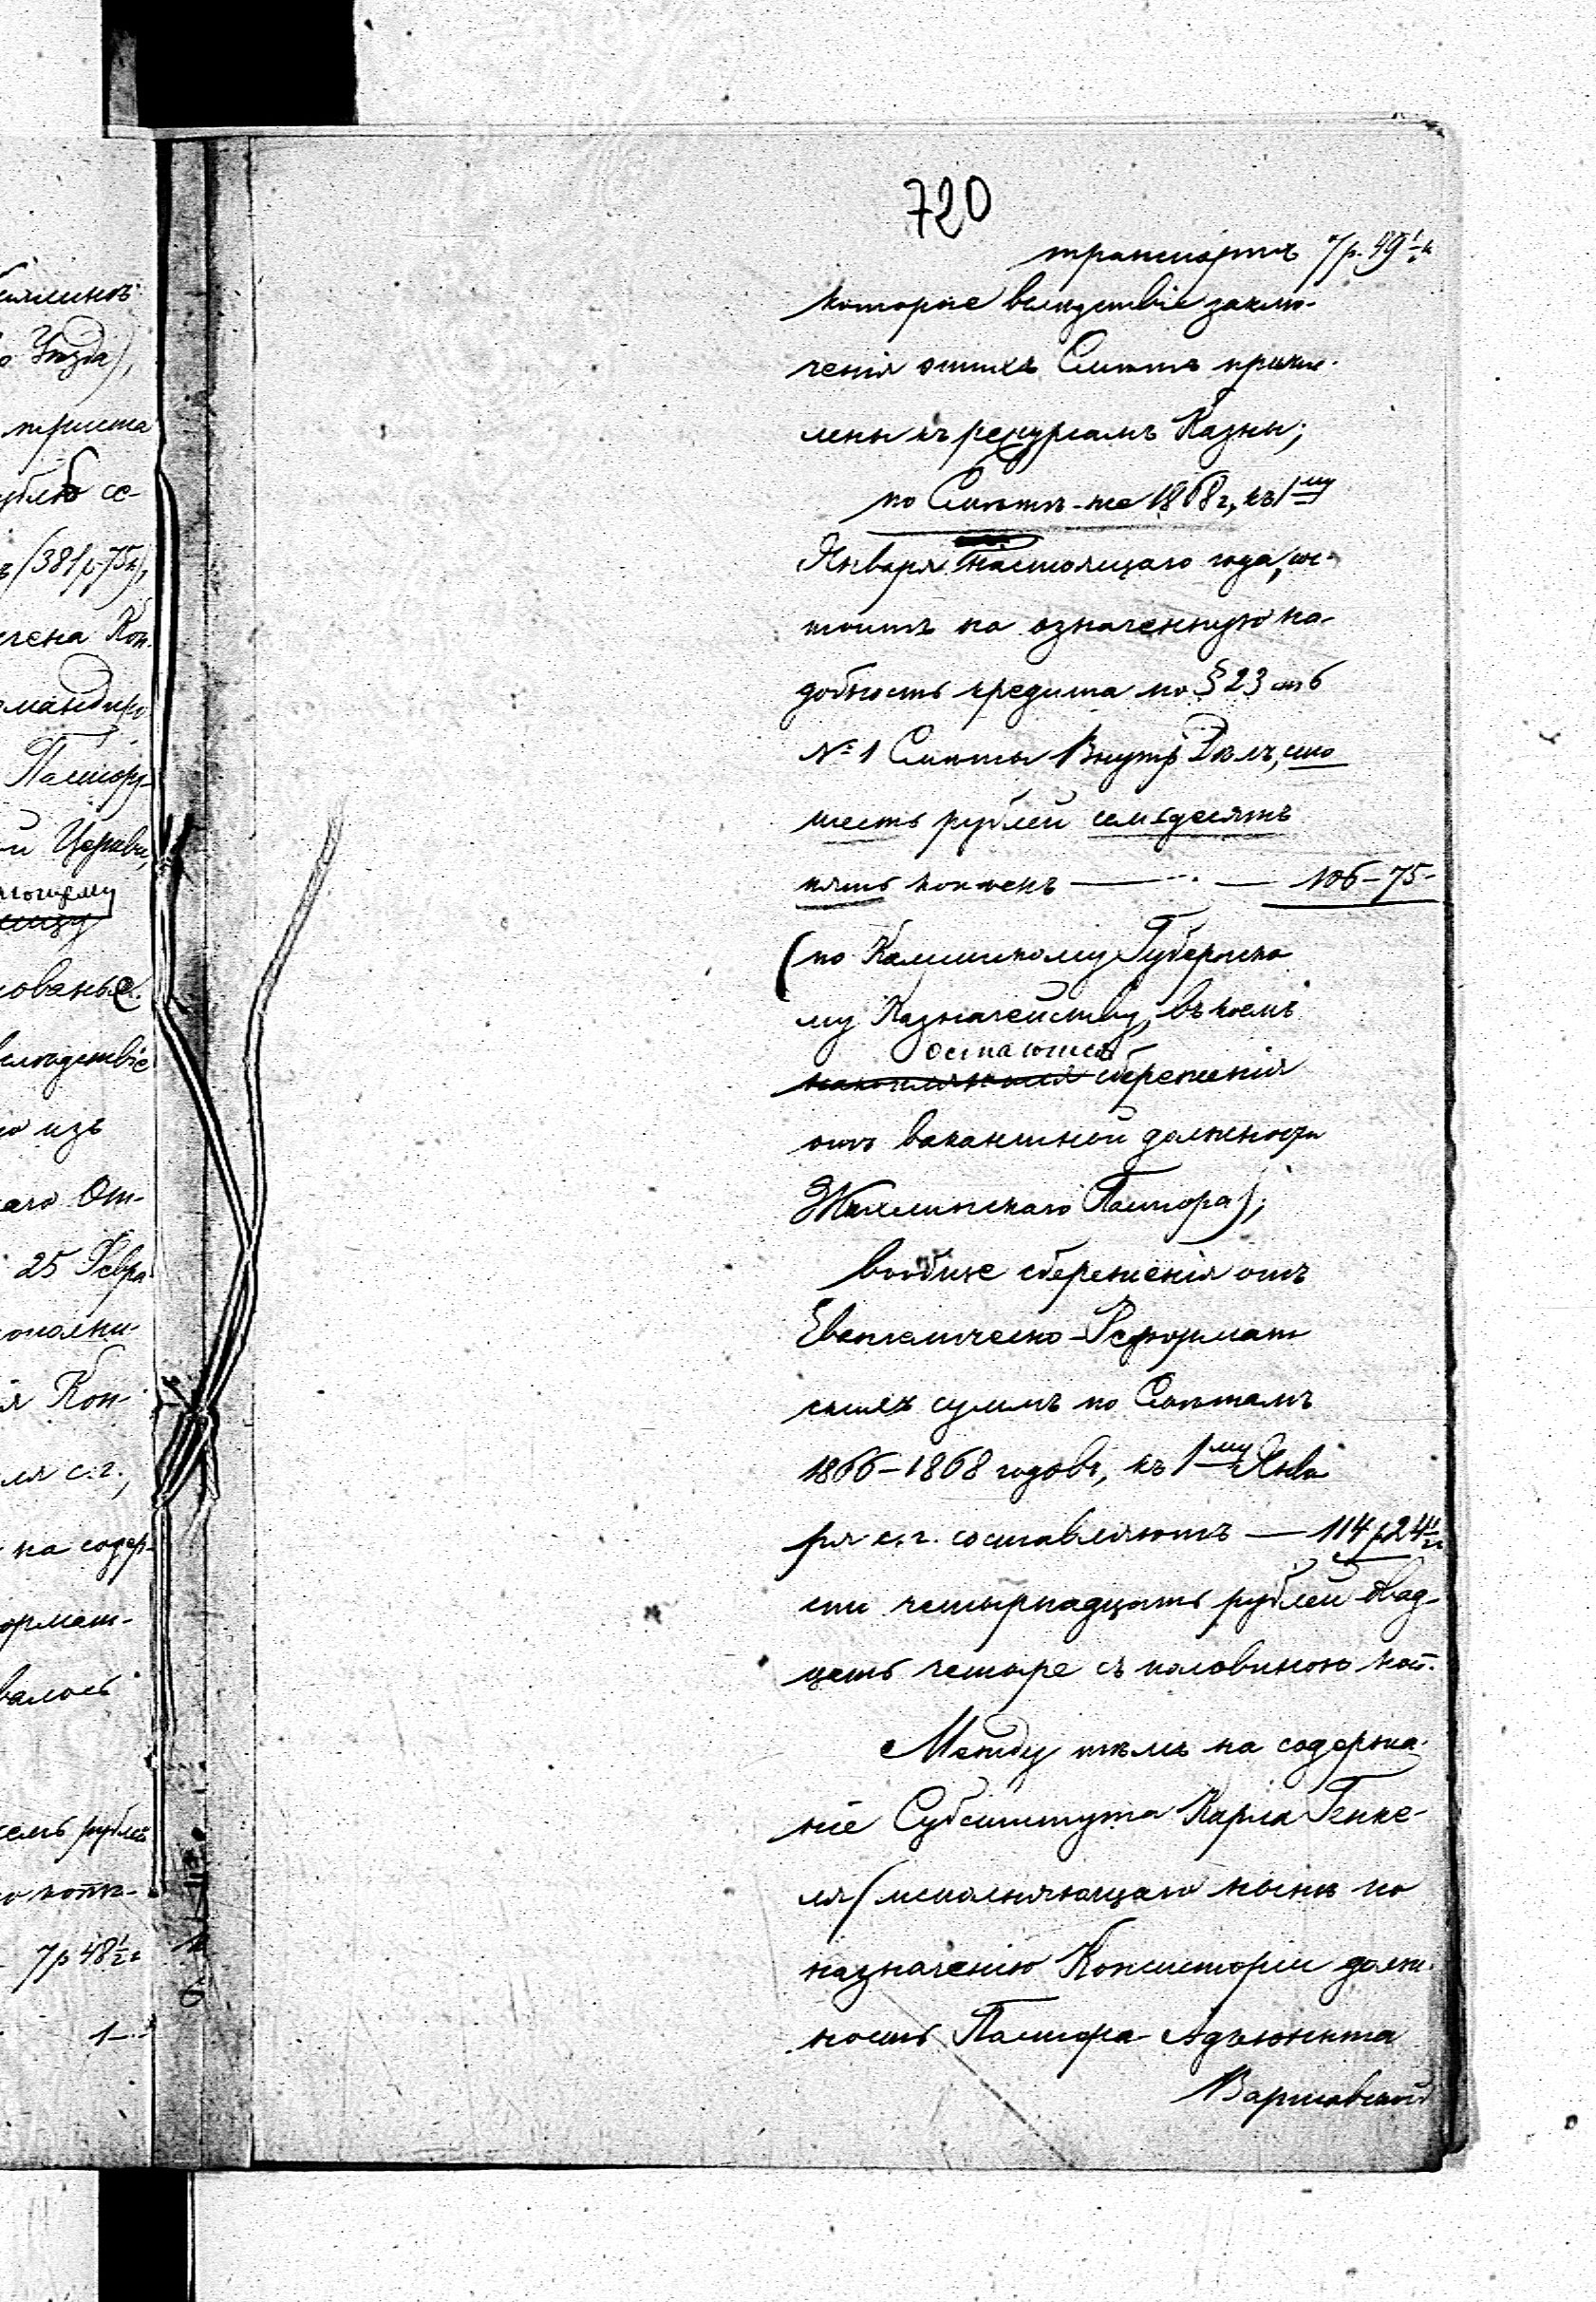 720
транспортъ 7 р. 49 1/2 к
которые вслѣдствіе заклю-
ченія этихъ Смѣтъ причис-
лены къ рессурсамъ Казны;
по Смѣтѣ-же 1868 г, къ 1му
Января настоящаго года, сос-
тоитъ на означенную на-
добность кредита по § 23 ст 6
№ 1 Смѣты Внутр Дѣлъ, сто
шесть рублей семьдесятъ
пять копѣекъ — 106-75-
(по Калишскому Губернско
му Казначейству, въ коемъ
остаются
сбереженія
отъ вакантной должности
Жихлинскаго Пастора);
вообще сбереженія отъ
Евангелическо-Реформат
скихъ суммъ по Смѣтамъ
1866-1868 годовъ, къ 1му Янва
ря с. г. составляютъ — 114 р 24 1/2
сто четырнадцать рублей двад-
цать четыре съ половиною коп.
Между тѣмъ на содержа-
ніе Субститута Карла Генке-
ля (исполняющаго нынѣ по
назначенію Консисторіи долж-
ность Пастора-Адъюнкта
Варшавской
Уѣзда),
триста
се-
(381 р 75 к),
Кон-
Пастору
Церкви,
вслѣдствіе
изъ
От-
25 Февра
Кон-
с. г.,
на содер-
рублей
7 р 48 1/2 к
1